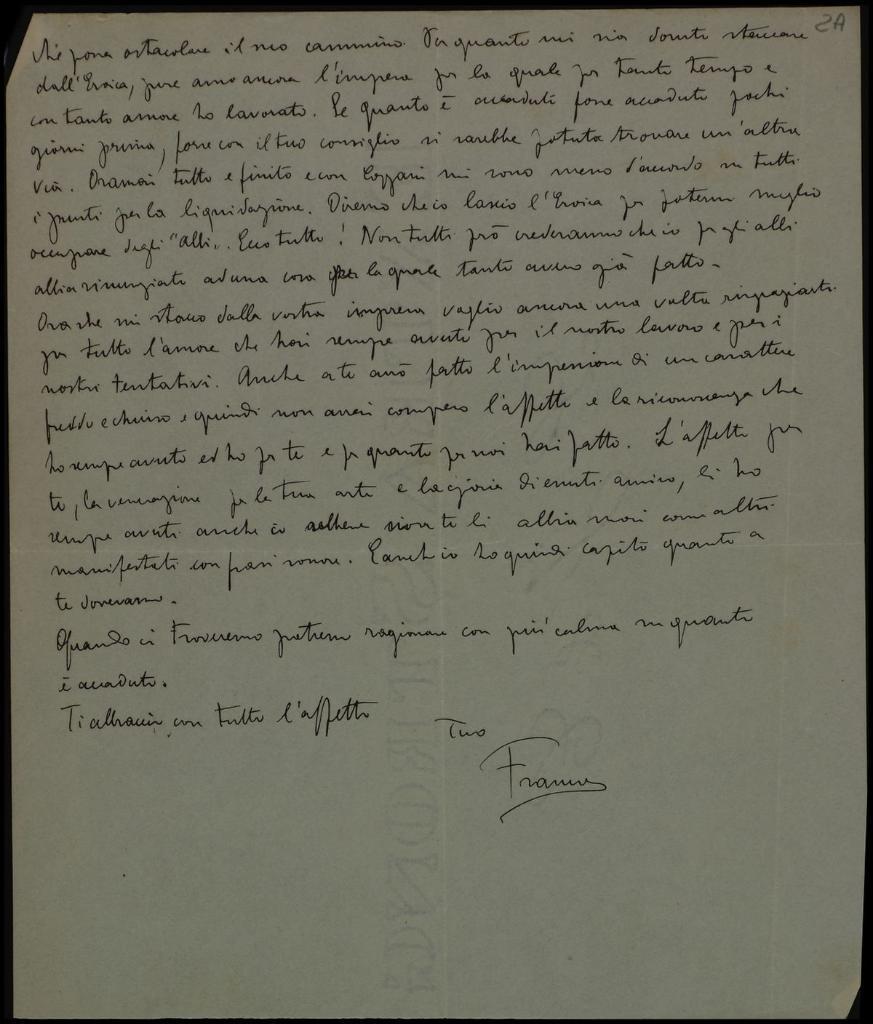 2A
che possa ostacolare il mio cammino. Per quanto mi sia dovuto staccare
dall'Eroica, pure amo ancora l'impresa per la quale per tanto tempo e
con tanto amore ho lavorato. Se quanto è accaduto fosse accaduto pochi
giorni prima, forse con il tuo consiglio si sarebbe potuta trovare un'altra
via. Oramai tutto è finito e con Cozzani mi sono messo d'accordo su tutti
i punti per la liquidazione. Diremo che io lascio l'Eroica per potermi meglio
occupare degli "Albi". Ecco tutto! Non tutti però crederanno che io per gli albi
abbia rinunziato ad una cosa per la quale tanto avevo già fatto.
Ora che mi stacco dalla vostra impresa voglio ancora una volta ringraziarti
per tutto l'amore che hai sempre avuto per il nostro lavoro e per i
nostri tentativi. Anche a te avrò fatto l'impressione di un carattere
freddo e chiuso e quindi non avrai compreso l'affetto e la riconoscenza che
ho sempre avuto ed ho per te e per quanto per noi hai fatto. L'affetto per
te, la venerazione per la tua arte e la gioia di esserti amico, li ho
sempre avuti anch'io sebbene non te li abbia mai come altri
manifestati con frasi sonore. E anch'io ho quindi capito quanto a
te dovevamo.
Quando ci troveremo potremo ragionare con più calma su quanto
è accaduto.
Ti abbraccio con tutto l'affetto
Tuo
Franco